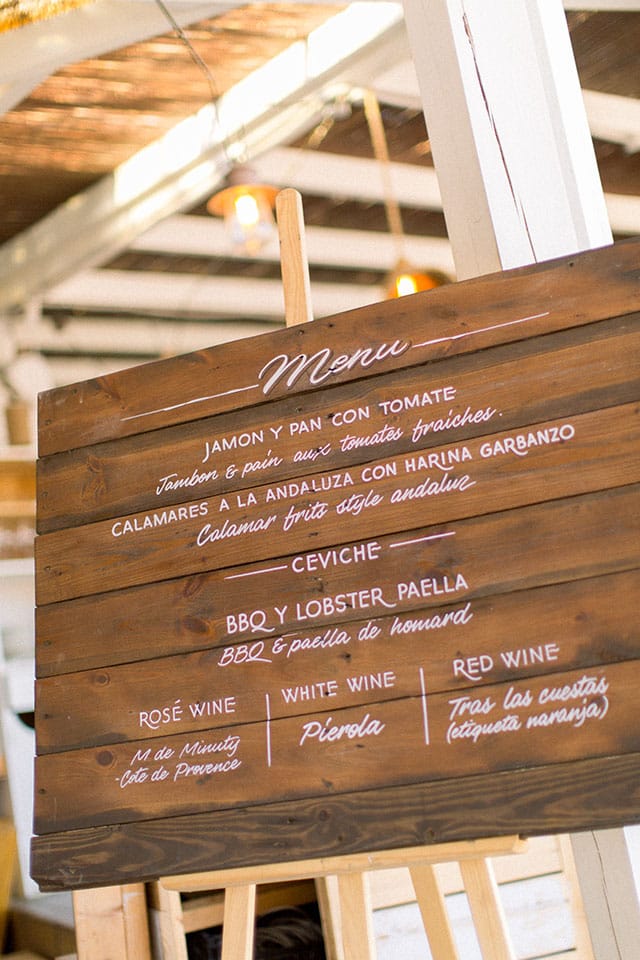 Menu
JAMON Y PAN CON TOMATE
Jambon & pain aux tomates fraîches.
CALAMARES A LA ANDALUZA CON HARINA GARBANZO
Calamar frito style andaluz
CEVICHE
BBQ Y LOBSTER PAELLA
BBQ & paëlla de homard
ROSÉ WINE
M de Minuty
-Cote de Provence
WHITE WINE
Piérola
RED WINE
Tras las cuestas
(etiqueta naranja)